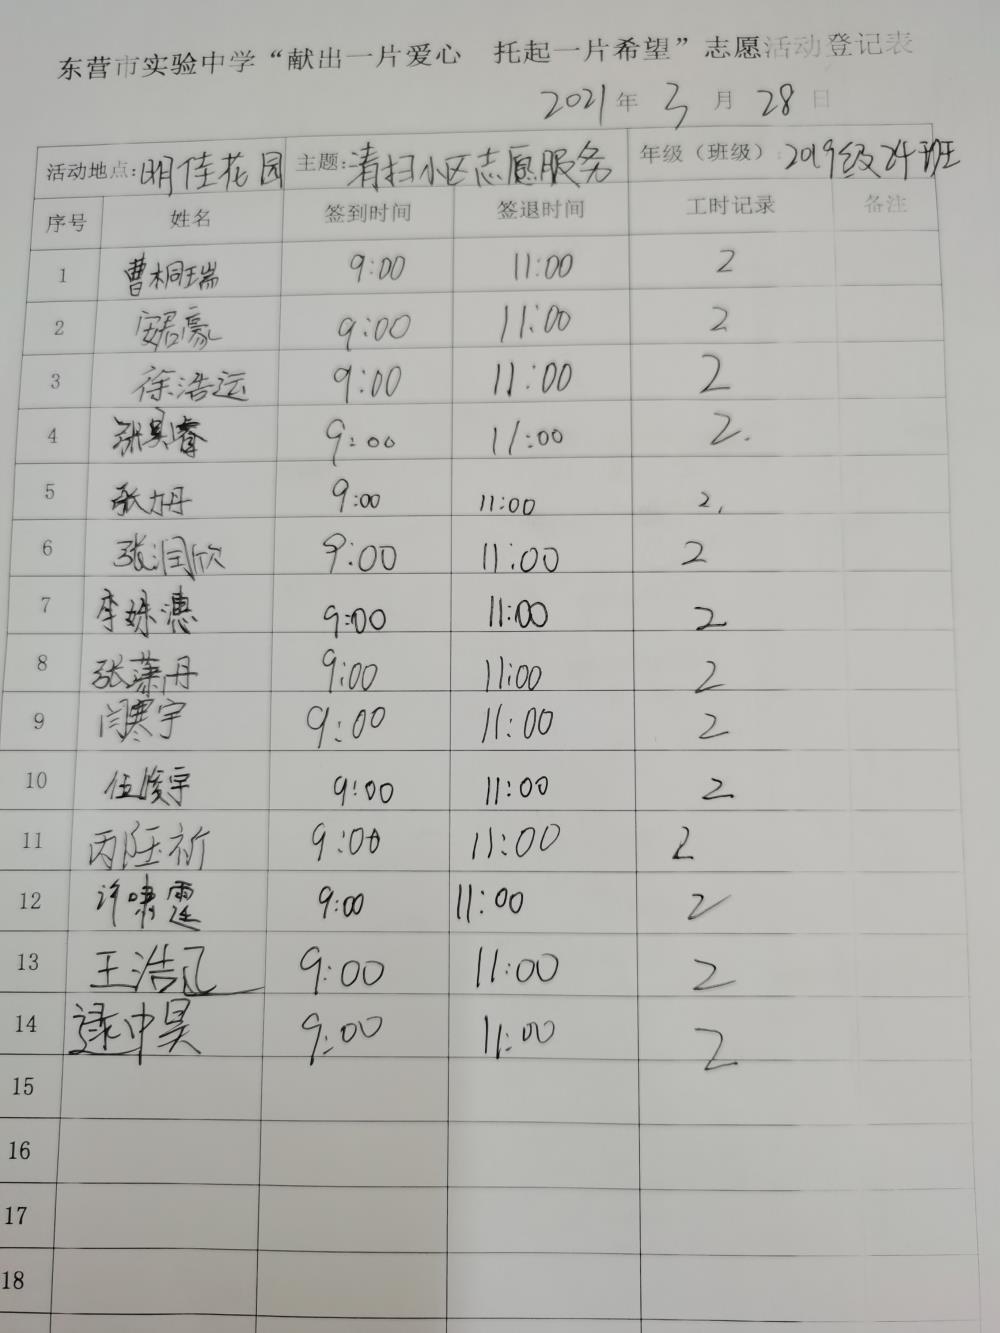 东营市实验中学“献出一片爱心 托起一片希望”志愿活动登记表
2021年 3月 28日
活动地点:明佳花园 主题:清扫小区志愿服务 年级（班级）:2019级24班
序号 姓名 签到时间 签退时间 工时记录 备注
1 曹桐瑞 9:00 11:00 2
2 安君豪 9:00 11:00 2
3 徐浩运 9:00 11:00 2
4 张昊睿 9:00 11:00 2.
5 张力丹 9:00 11:00 2.
6 张润欣 9:00 11:00 2
7 李姝漶 9:00 11:00 2
8 张潇丹 9:00 11:00 2
9 闫寒宇 9:00 11:00 2
10 伍俊宇 9:00 11:00 2
11 丙钰祈 9:00 11:00 2
12 许啸霆 9:00 11:00 2
13 王浩 9:00 11:00 2
14 逯中昊 9:00 11:00 2
15
16
17
18